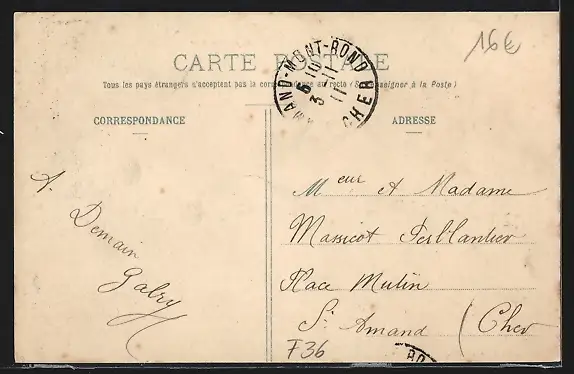 16€
CARTE POSTALE
Tous les pays étrangers n'acceptent pas la correspondance au recto (Se renseigner à la Poste)
CORRESPONDANCE
ADRESSE
AMAND-MONT-ROND
5 10
3 -11
11
CHER
A.
Demain
Galry
Meur et Madame
Massicot Ferblantier
Place Mutin
St Amand (Cher
F36